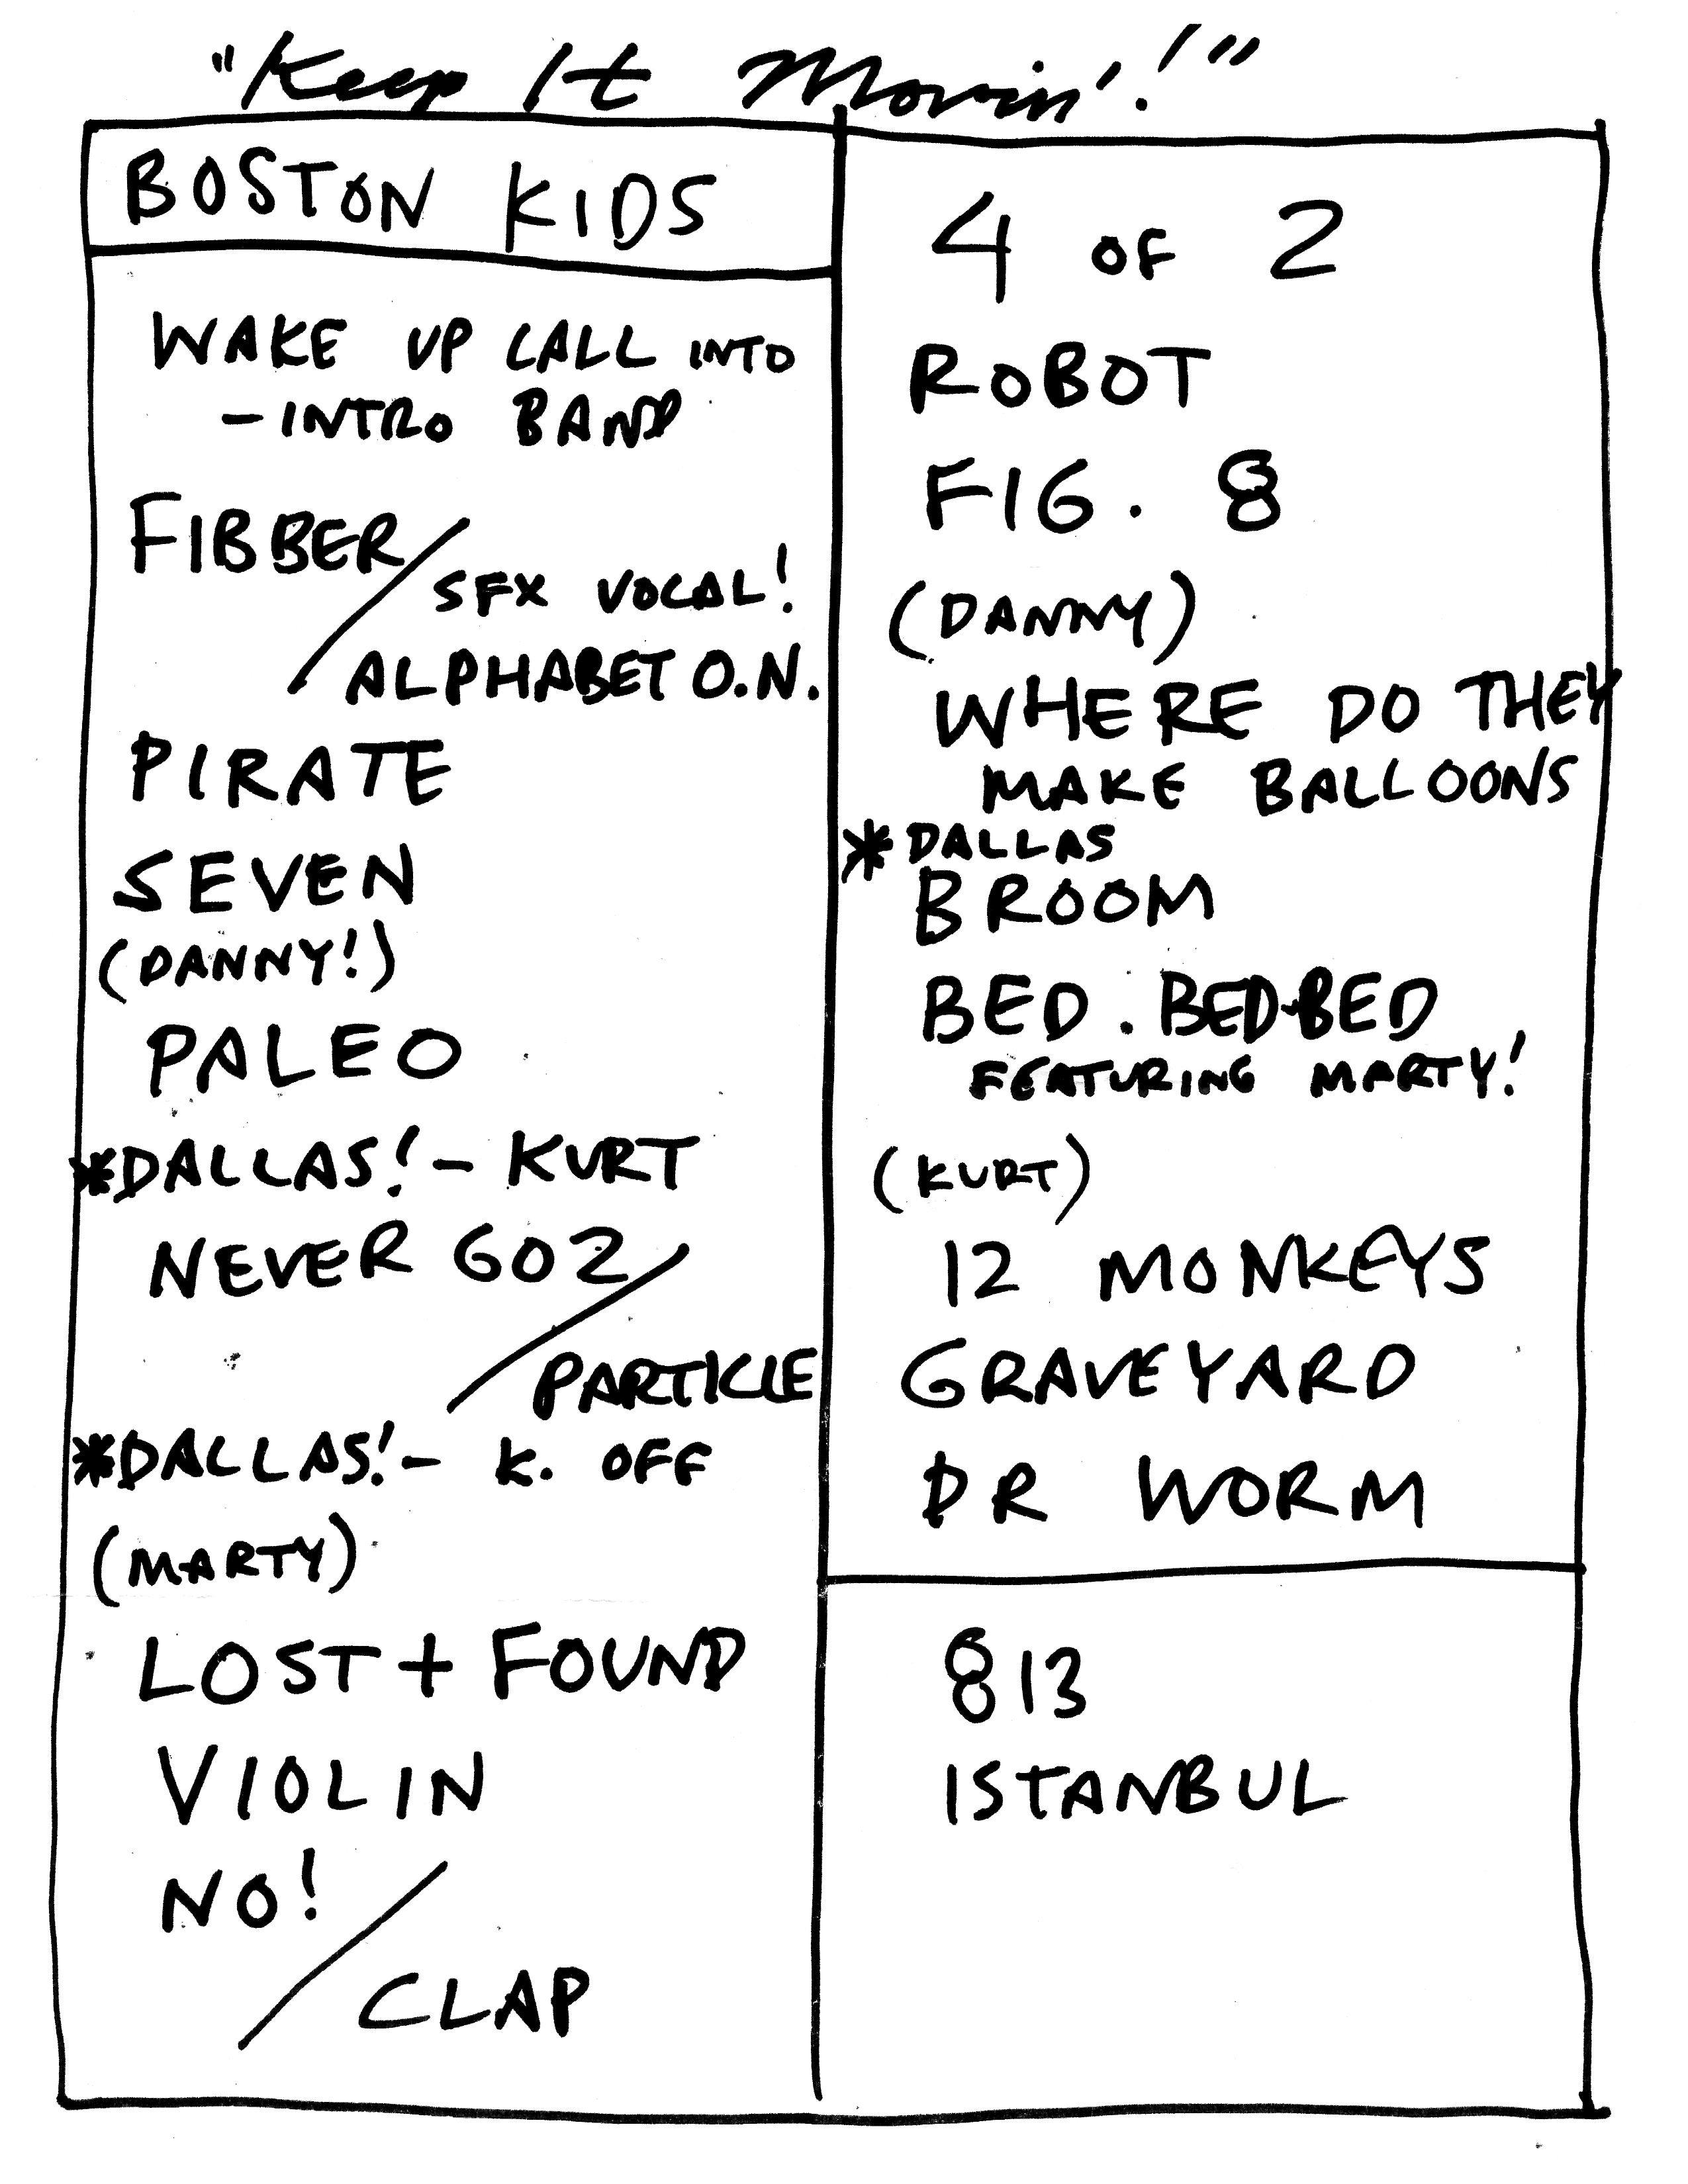 "Keep It Movin'!"
BOSTON KIDS
WAKE UP CALL INTO
- INTRO BAND
FIBBER/
SFX VOCAL!
ALPHABET O.N.
PIRATE
SEVEN
(DANNY!)
PALEO
*DALLAS! - KURT
NEVER GO 2/
PARTICLE
*DALLAS! - K. OFF
(MARTY)
LOST + FOUND
VIOLIN
NO!/
CLAP
4 OF 2
ROBOT
FIG. 8
(DANNY)
WHERE DO THEY
MAKE BALLOONS
*DALLAS
BROOM
BED. BED-BED
FEATURING MARTY!
(KURT)
12 MONKEYS
GRAVEYARD
DR WORM
813
ISTANBUL